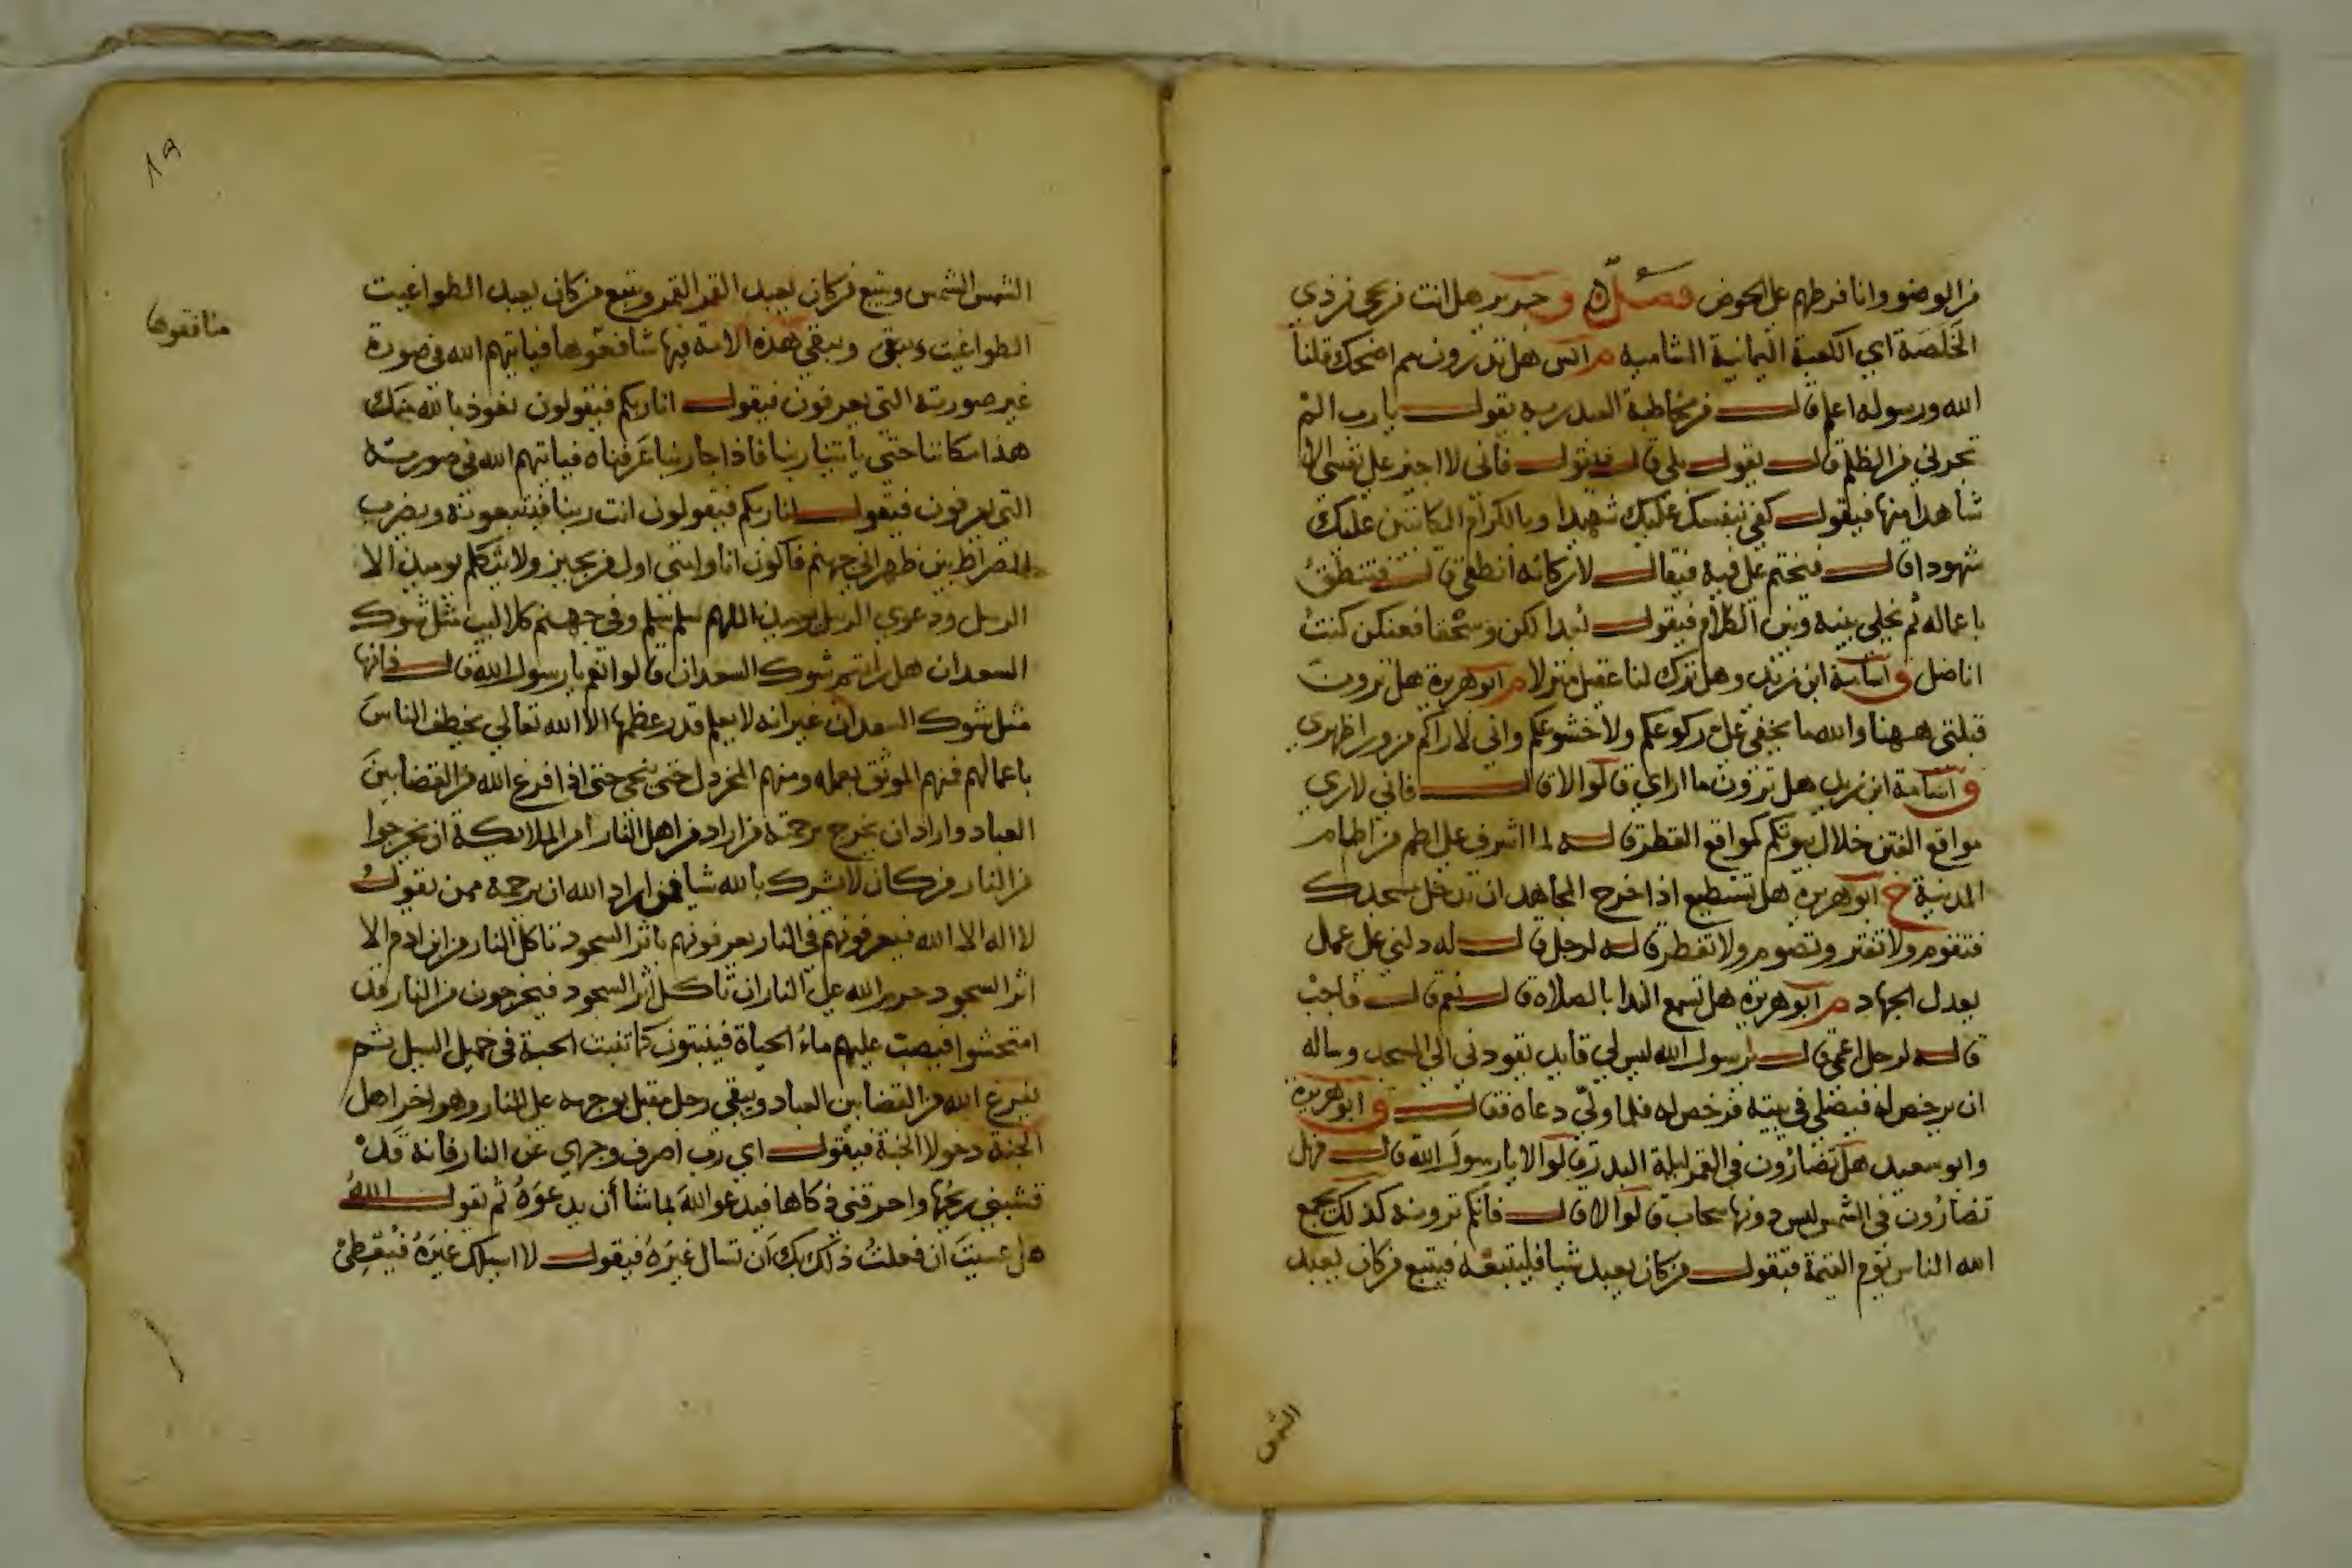 من الوضو وانا فرطهم على الحوض فصل ق جرير هل انت مريحي من ذي
الخَلَصَة اي الكعبة اليمانية الشامية م انس هل تدرون مم اضحك قلنا
الله ورسوله اعلم قال من مخاطبة العبد ربه يقول يا رب الم
تجرني من الظلم قال يقول بلى قال فيقول فاني لا اجيز على نفسي الا
شاهدا منها فيقول كفى بنفسك عليك شهيدا وبالكرام الكاتبين عليك
شهودا قال فيختم على فيه فيقال لاركانه انطقي قال فتنطق
باعماله ثم يخلى بينه وبين الكلام فيقول بُعدا لكن وسُحقا فعنكن كنتُ
اناضل ق اسامة ابن زيد وهل ترك لنا عقيل منزلا م ابو هريرة هل ترون
قبلتي ههنا والله ما يخفى على ركوعكم ولا خشوعكم واني لاراكم من ورا ظهري
ق اسامة ابن زيد هل ترون ما ارى قالوا لا قال فاني لارى
مواقع الفتن خلال بيوتكم كمواقع القطر قاله لما اشرف على اطم من اطام
المدينة خ ابو هريرة هل تستطيع اذا خرج المجاهد ان تدخل مسجدك
فتقوم ولا تفتر وتصوم ولا تفطر قاله لرجل قال له دلني على عمل
يعدل الجهاد م ابو هريرة هل تسمع الندا بالصلاة قال نعم قال فاجب
قاله لرجل اعمى قال يا رسول الله ليس لي قايد يقودني الى المسجد وساله
ان يرخص له فيصلي في بيته فرخص له فلما ولّى دعاه فقال ق ابو هريرة
وابو سعيد هل تضارّون في القمر ليلة البدر قالوا لا يا رسول الله قال فهل
تضارّون في الشمس ليس دونها سحاب قالوا لا قال فانكم ترونه كذلك يجمع
الله الناس يوم القيمة فيقول من كان يعبد شيا فليتبعه فيتبع من كان يعبد
الشمس
٨٩
الشمس الشمس ويتبع من كان يعبد القمر القمر ويتبع من كان يعبد الطواغيت
الطواغيت وتبقى هذه الامة فيها شافعوها فياتيهم الله في صورة
منافقوها
غير صورته التي يعرفون فيقول انا ربكم فيقولون نعوذ بالله منك
هذا مكاننا حتى ياتينا ربنا فاذا جا ربنا عَرفناه فياتيهم الله في صورته
التي يعرفون فيقول انا ربكم فيقولون انت ربنا فيتبعونه ويضرب
الصراط بين ظهراني جهنم فاكون انا وامتي اول من يجيز ولا يتكلم يوميذ الا
الرسل ودعوى الرسل يوميذ اللهم سلم سلم وفي جهنم كلاليب مثل شوك
السعدان هل رايتم شوك السعدان قالوا نعم يا رسول الله قال فانها
مثل شوك السعدان غير انه لا يعلم قدر عظمها الا الله تعالى يخطف الناس
باعمالهم فمنهم الموثق بعمله ومنهم المخردل حتى ينجى حتى اذا فرغ الله من القضا بين
العباد واراد ان يخرج برحمته من اراد من اهل النار امر الملايكة ان يخرجوا
من النار من كان لا يشرك بالله شيا فمن اراد الله ان يرحمه ممن يقول
لا اله الا الله فيعرفونهم في النار يعرفونهم باثر السجود تاكل النار من ابن ادم الا
اثر السجود حرم الله على النار ان تاكل اثر السجود فيخرجون من النار قد
امتحشوا فيصب عليهم ماءُ الحياة فينبتون كما تنبت الحبة في حميل السيل ثم
يفرغ الله من القضا بين العباد ويبقى رجل مقبل بوجهه على النار وهو اخر اهل
الجنة دخولا الجنة فيقول اي رب اصرف وجهي عن النار فانه قد
قشبني ريحُها واحرقني ذكاها فيدعو اللهَ بما شا أن يدعوَهُ ثم يقول اللهُ
هل عسيتَ ان فعلتُ ذلك بك أن تسال غيرَهُ فيقول لا اسيلك غيرَهُ فيُعطِي